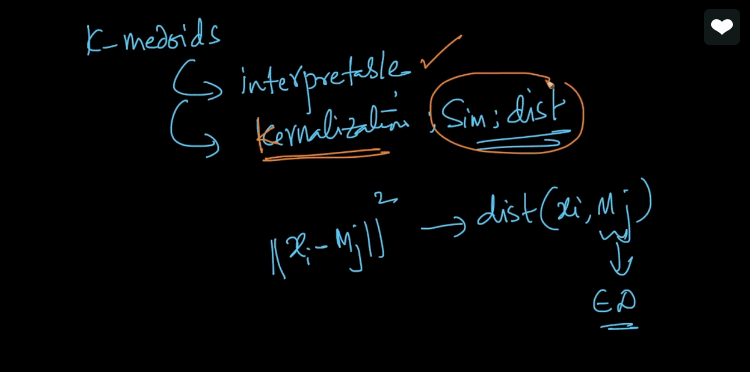 K-medoids
↳ interpretable ✓
↳ Kernalization; Sim; dist
||xi - Mj||² → dist(xi, Mj)
↓
ED